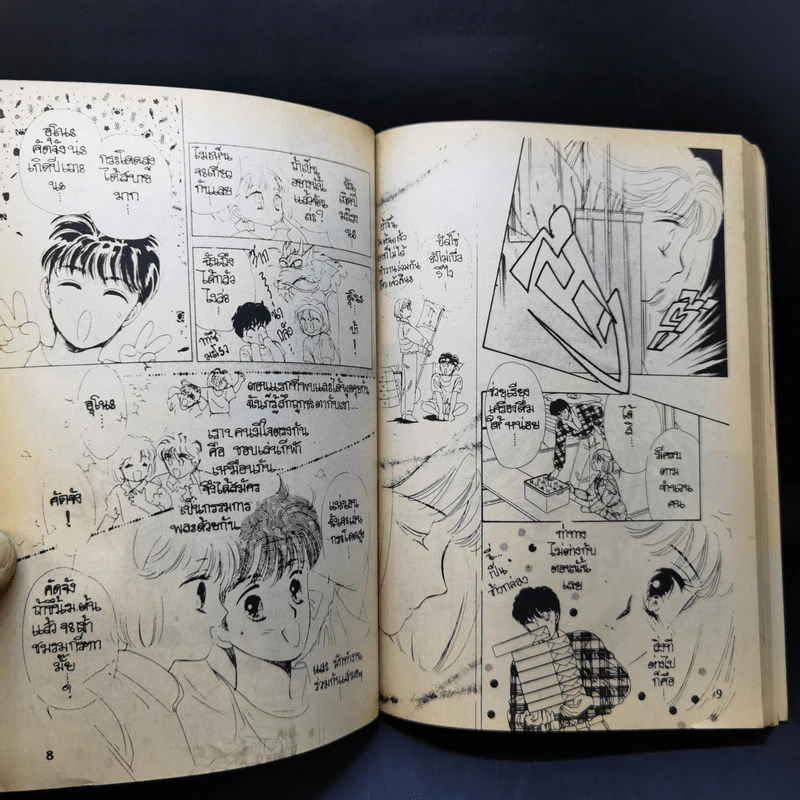 อุโนะ
คัตจัง น่ะ
เกิดปีเถาะ
นะ
กระโดดสูง
ได้สบาย
มาก
ไม่เห็น
จะเกี่ยว
กันเลย
ถ้าเป็น
อย่างนั้น
แล้วฉัน
ล่ะ?
ฉัน
เกิดปี
มะโรง
นะ
ฉันถึง
ได้กลัว
ไงล่ะ
อุโนะ
ตอนแรกที่พบและได้พูดคุยกัน
ฉันก็รู้สึกถูกชะตากับเขา...
เรา 2 คนมีใจตรงกัน
คือ ชอบเล่นกีฬา
เหมือนกัน
จึงได้สมัคร
เป็นกรรมการ
พละด้วยกัน
อุโนะ
คัตจัง
!
แน่นอน
กระโดดสูง
คัตจัง
ถ้าขึ้นม.ต้น
แล้วจะเข้า
ชมรมกรีฑา
มั้ย
?
และ มักทำงาน
ร่วมกันเสมอๆ
8
ช่วยเรียง
เครื่องดื่ม
ให้ หน่อย
ได้
สิ
มีครบ
ตาม
จำนวน
คน
ท่าทาง
ไม่ต่างกับ
ตอนนั้น
เลย
สิ่งที่
ต่างไป
ก็คือ
9